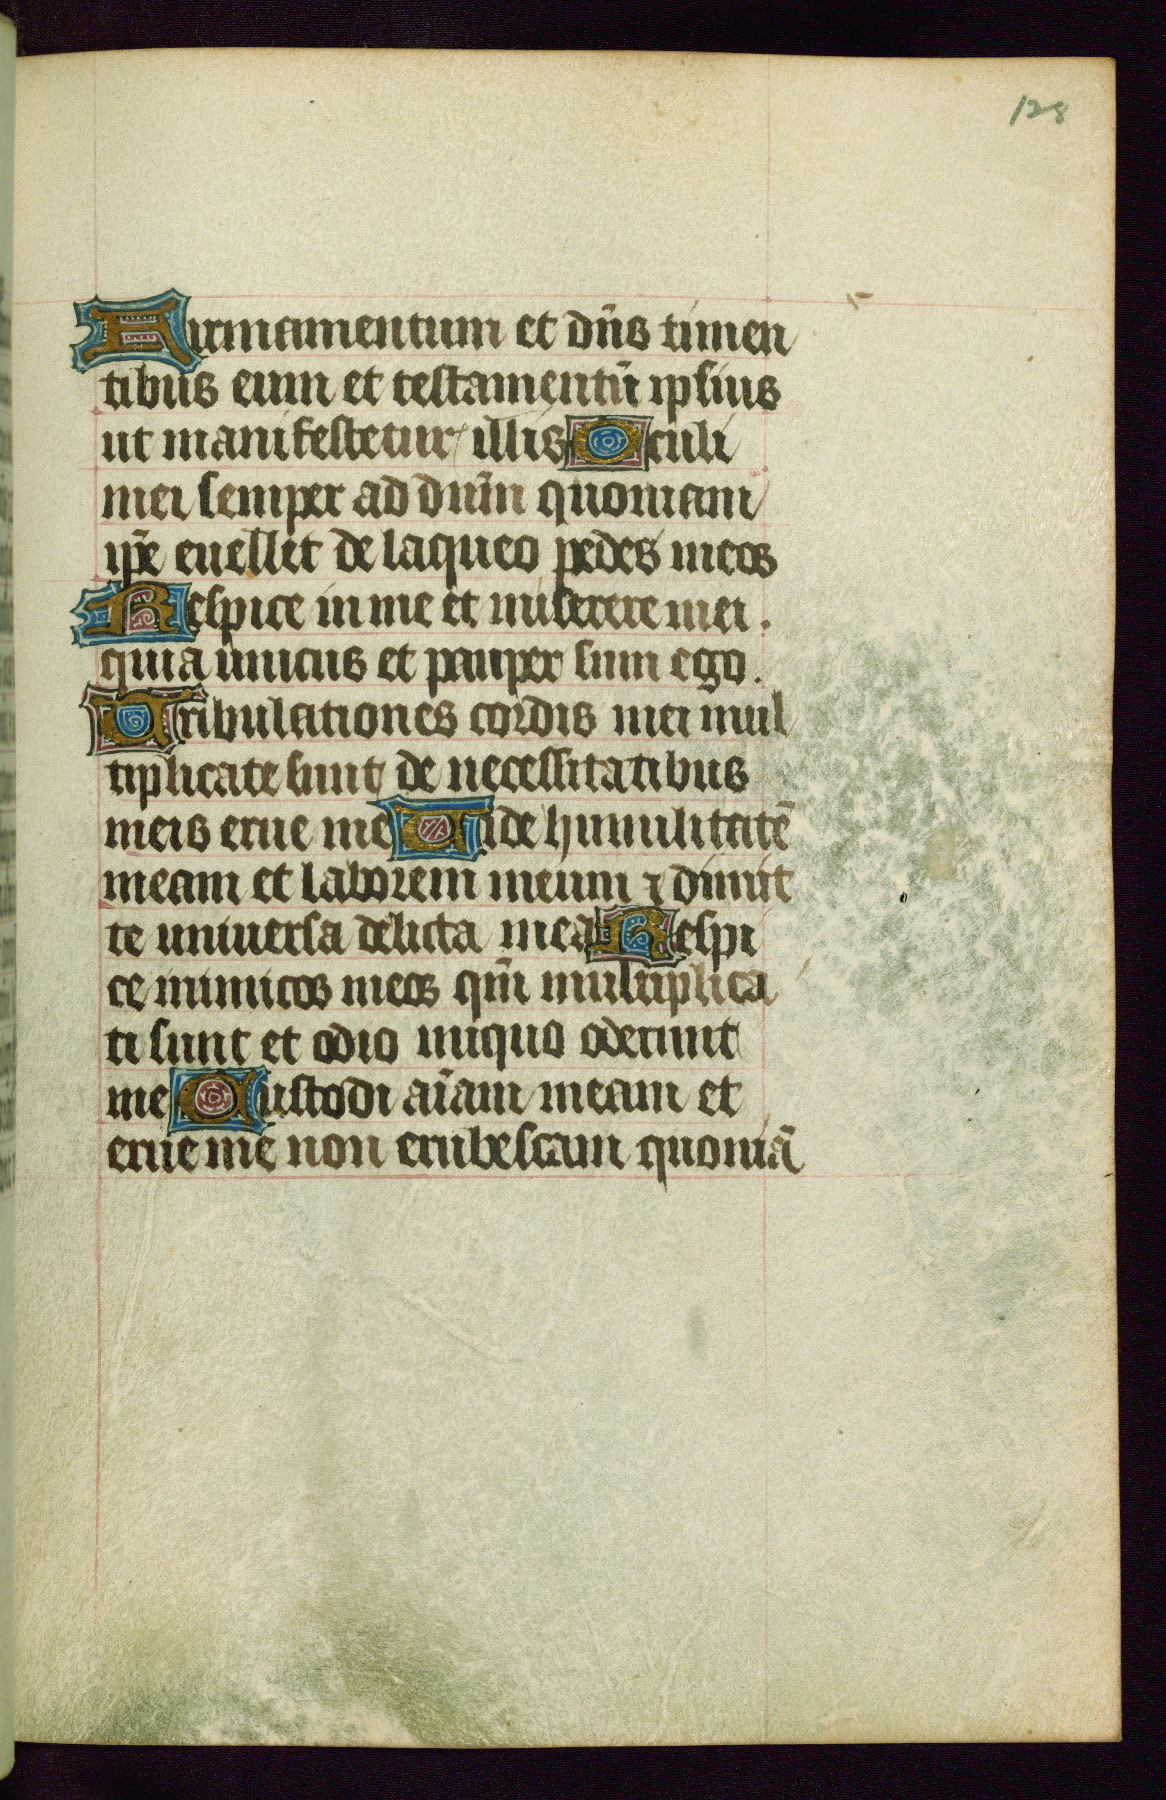 128
Firmamentum et dñs timen
tibus eum et testamentũ ipsius
ut manifestetur illis Oculi
mei semper ad dñm quoniam
ip̃e euellet de laqueo pedes meos
Respice in me et miserere mei.
quia unicus et pauper sum ego.
Tribulationes cordis mei mul
tiplicate sunt de necessitatibus
meis erue me Uide humilitatẽ
meam et laborem meum ⁊ dimit
te uniuersa delicta mea Respi
ce inimicos meos qm̃ multiplica
ti sunt et odio iniquo oderunt
me Custodi aĩam meam et
erue me non erubescam quoniã